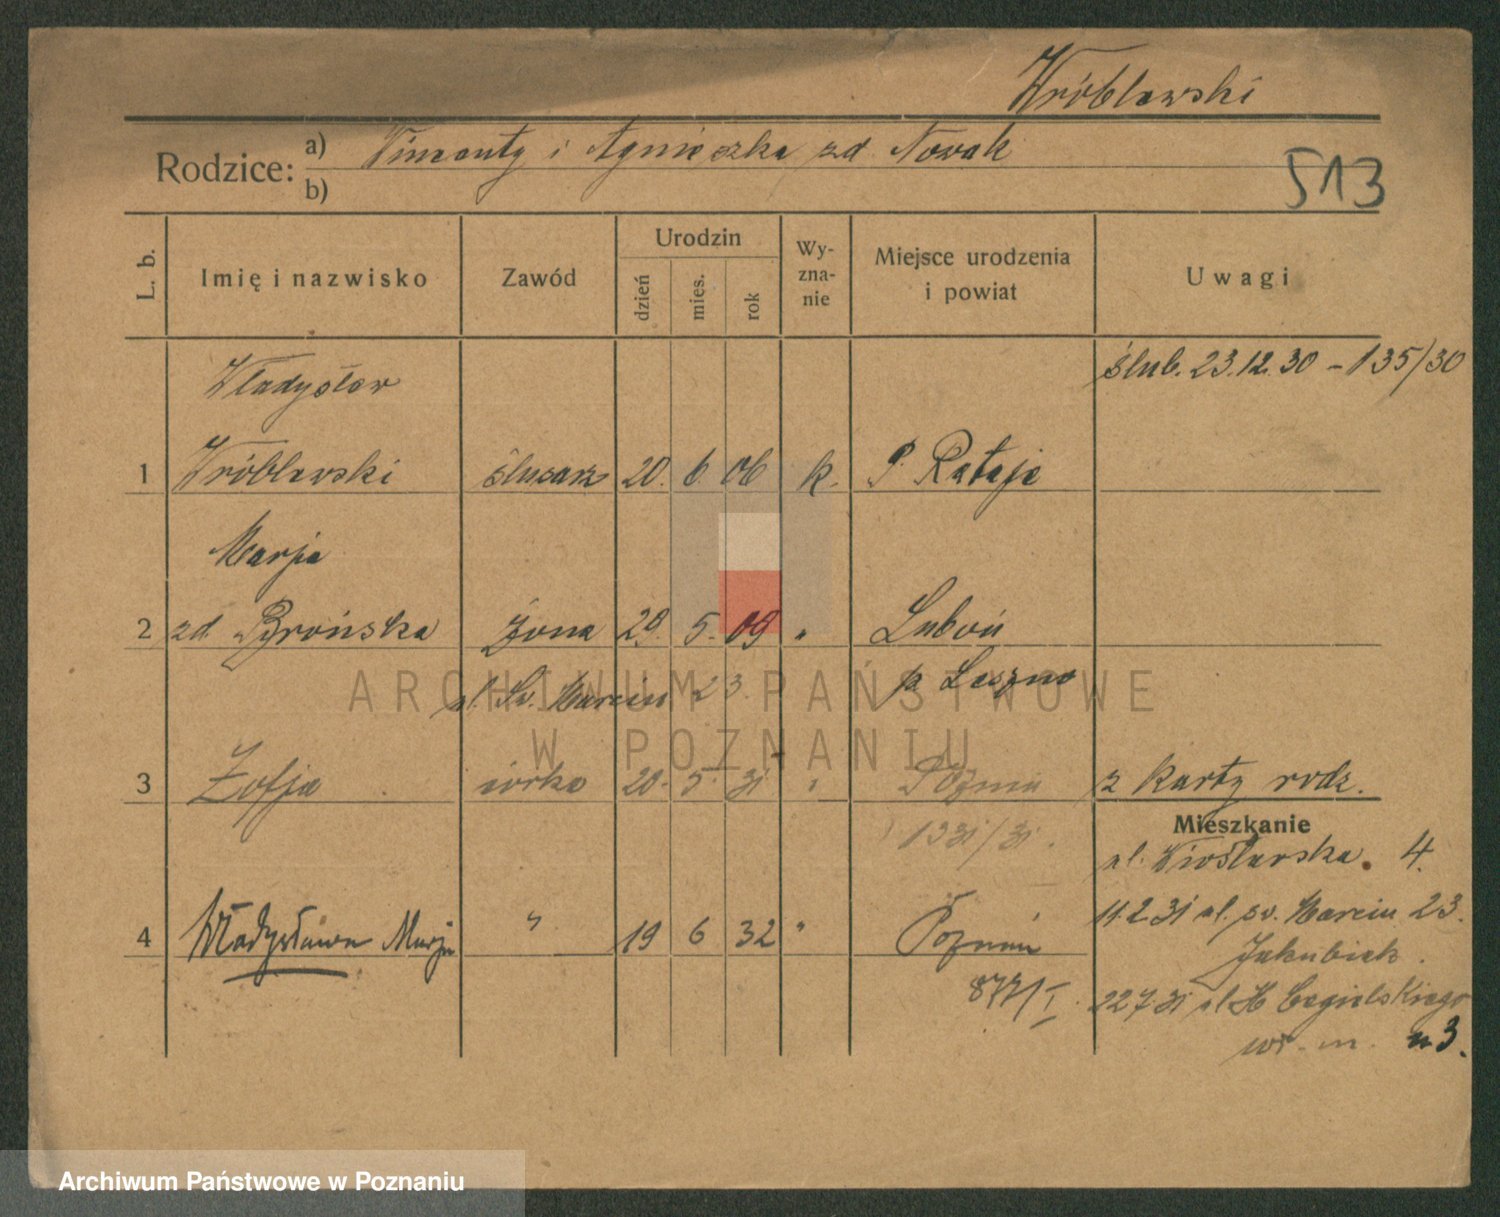 Wróblewski
Rodzice: a) Wincenty i Agnieszka zd. Nowak
b)
513
L. b. Imię i nazwisko Zawód Urodzin dzień mies. rok Wy-zna-nie Miejsce urodzenia i powiat Uwagi
Władysław ślub. 23.12.30 – 135/30
1 Wróblewski ślusarz 20. 6. 06 k. P. Rataje
Marja
2 zd. Brońska żona 29. 5. 09 " Luboń
ul. Św. Marcin 23. p. Leszno
3 Zofja córka 20. 5. 31 " Poznań z karty rodz.
1331/31.
Mieszkanie
ul. Wioślarska. 4.
11.2.31 ul. św. Marcin 23.
4 Władysława Marja " 19 6 32 " Poznań
Jakubiak.
877/I. 22.7.31 ul. H. Cegielskiego
w. m. 3.
ARCHIWUM PAŃSTWOWE
W POZNANIU
Archiwum Państwowe w Poznaniu